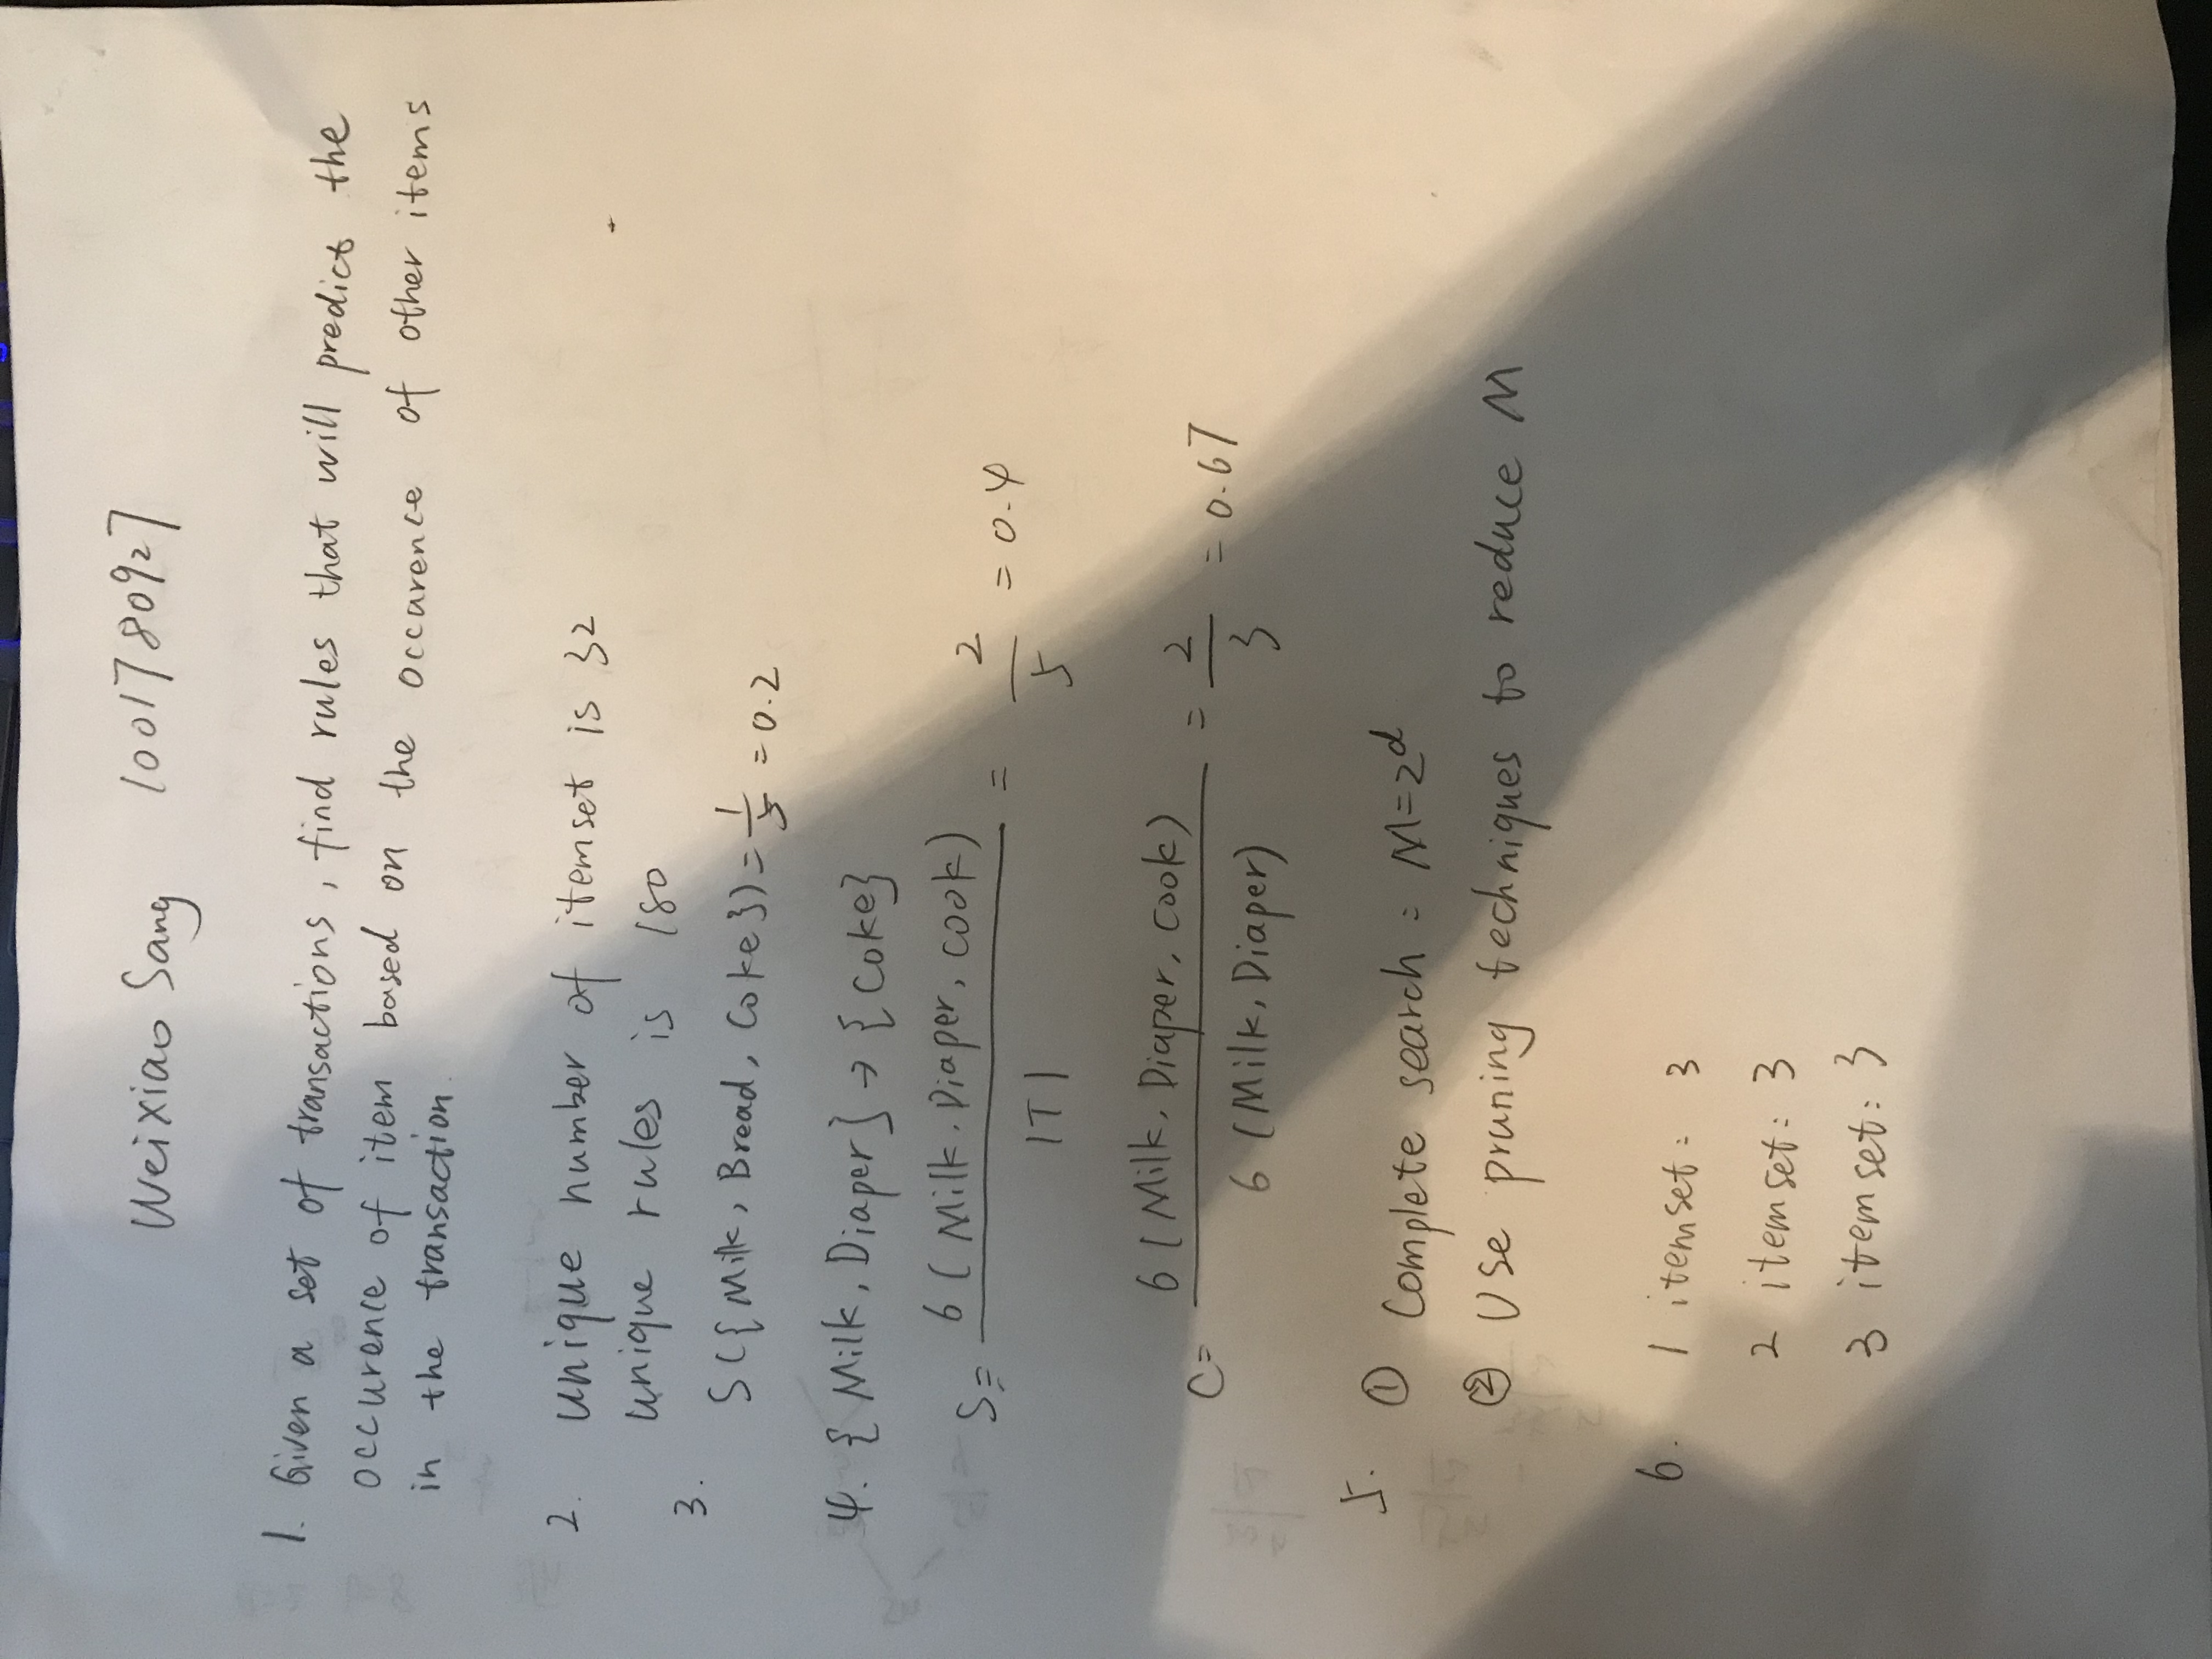 Weixiao Sang 1001780927
1. Given a set of transactions, find rules that will predict the
occurence of item based on the occarence of other items
in the transaction.
2. unique number of itemset is 32
unique rules is 180
3.
S({Milk, Bread, Coke}) = 1/5 = 0.2
4. {Milk, Diaper} → {Coke}
S = 6(Milk, Diaper, Cook) / |T| = 2/5 = 0.4
C = 6(Milk, Diaper, Cook) / 6(Milk, Diaper) = 2/3 = 0.67
5. ① Complete search : M=2^d
② Use pruning techniques to reduce M
6. 1 itemset: 3
2 itemset: 3
3 itemset: 3